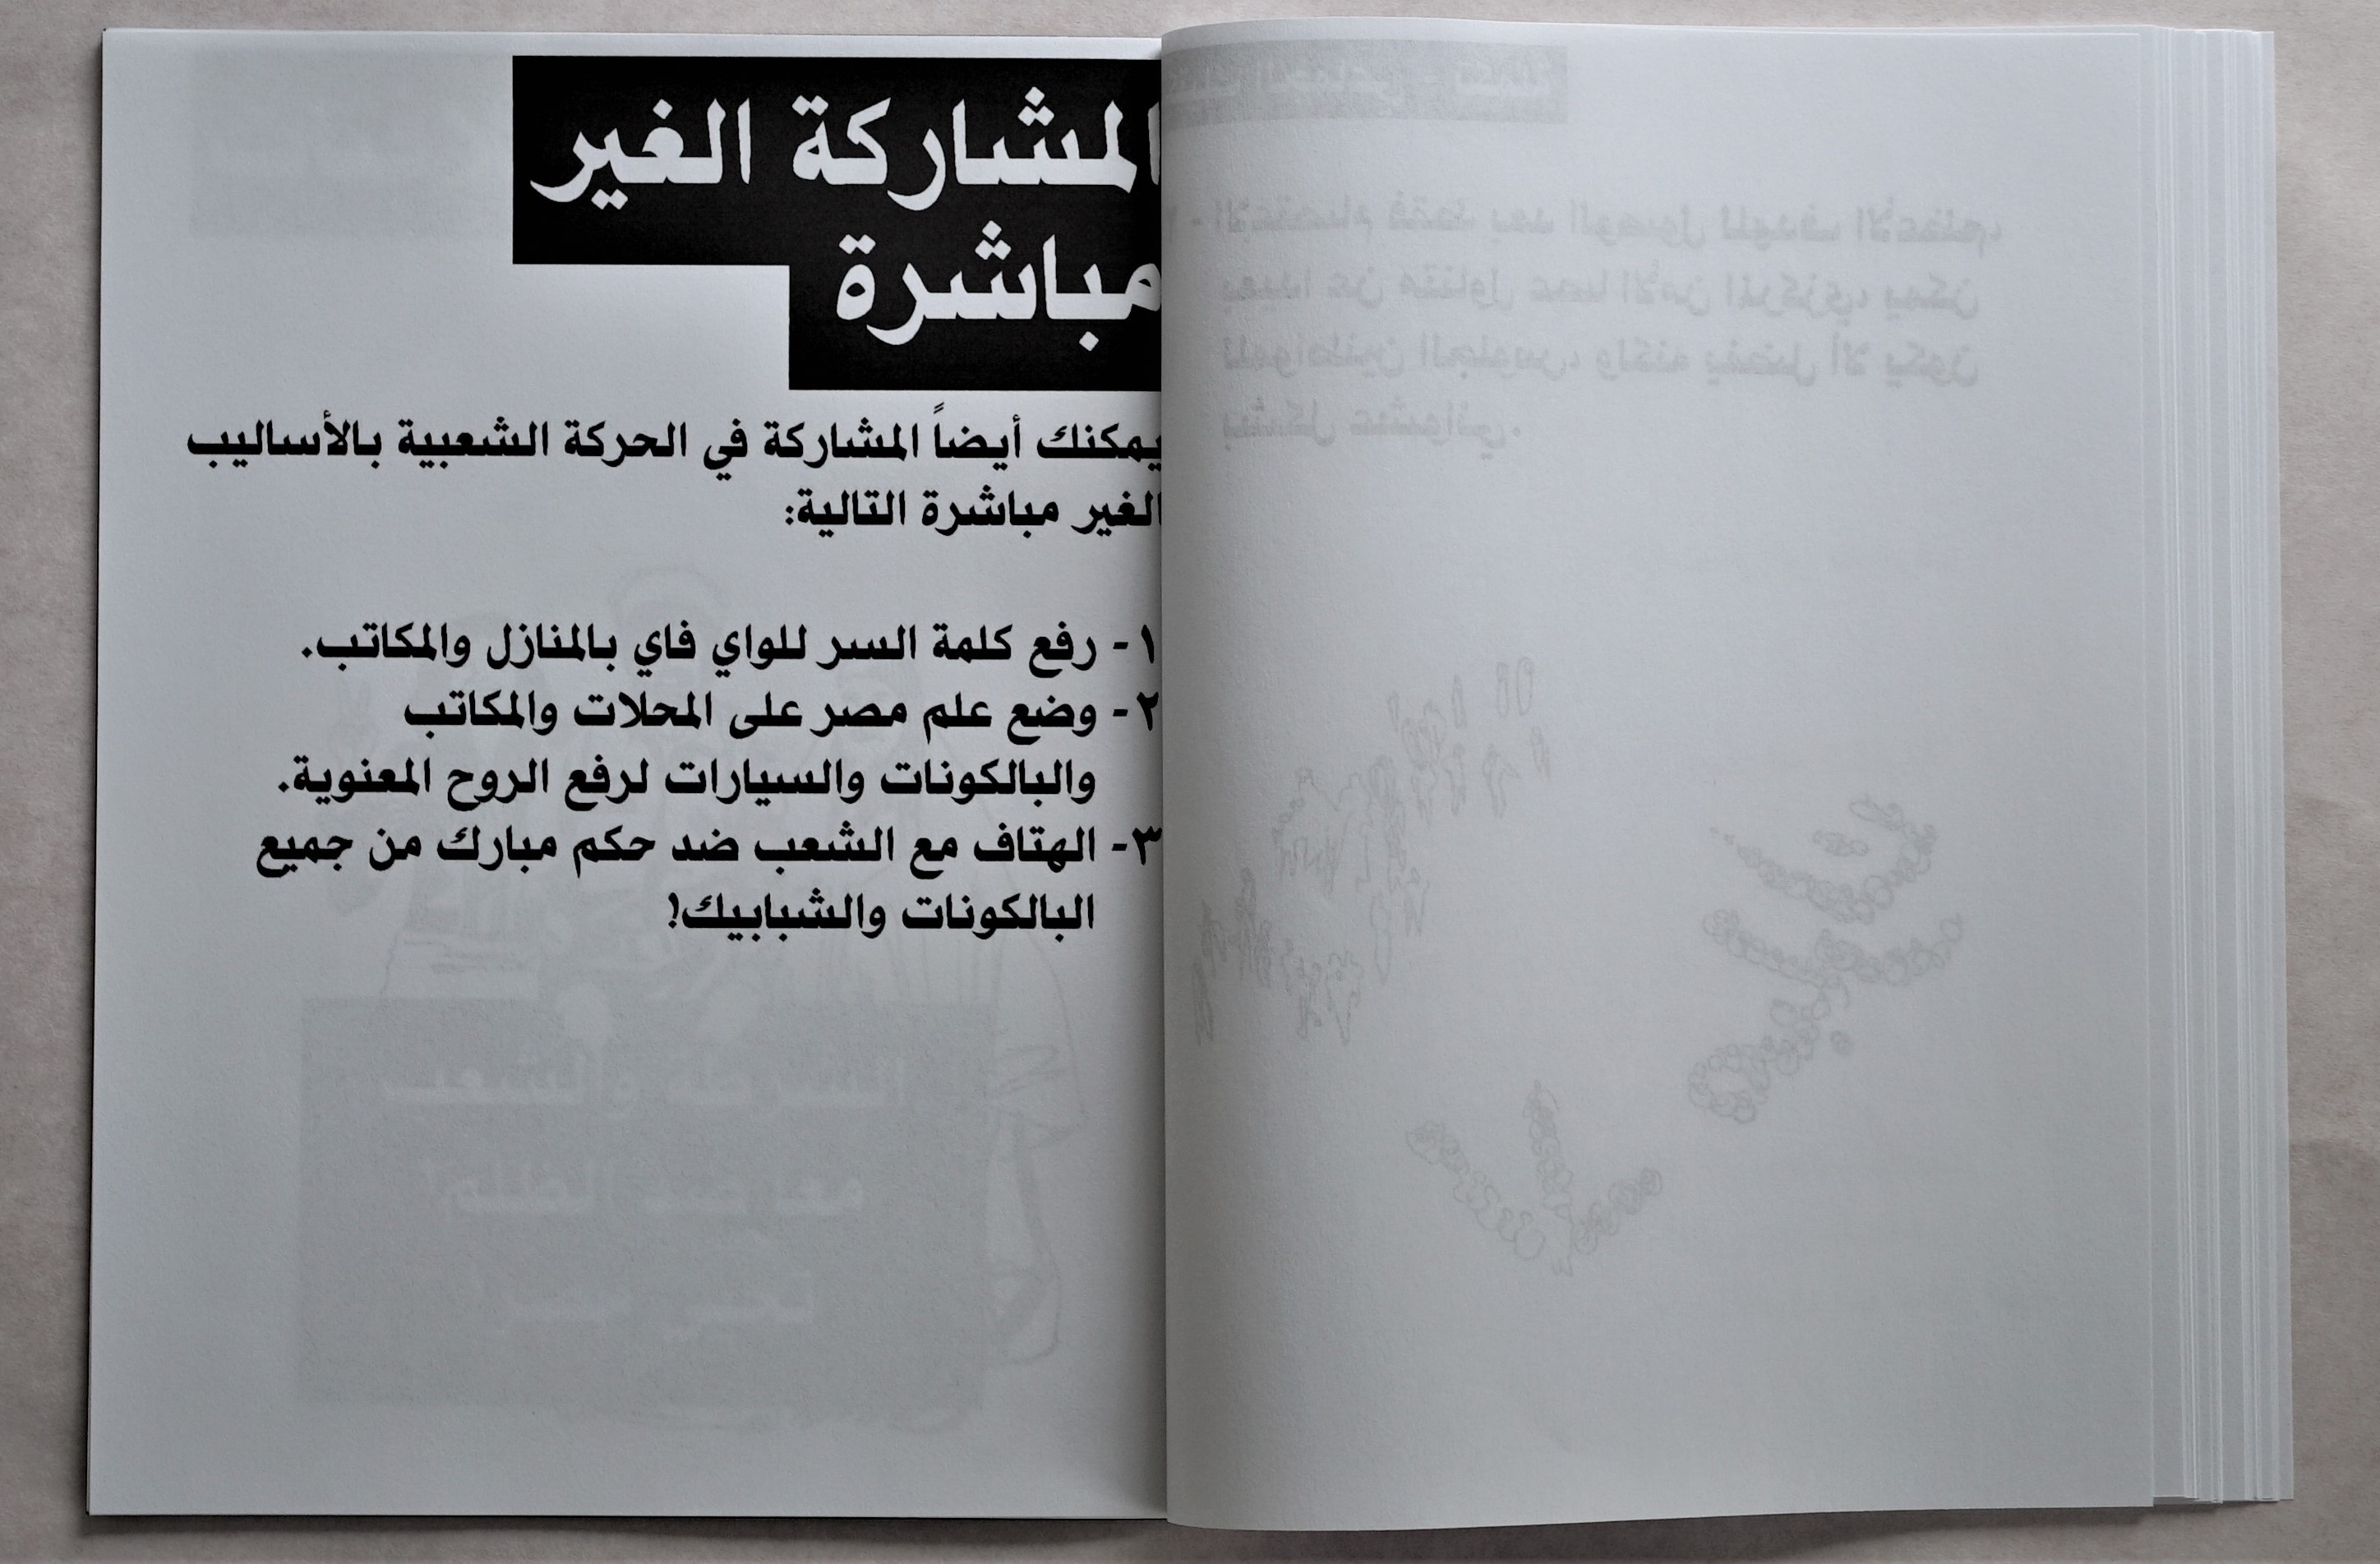 المشاركة الغير
مباشرة
يمكنك أيضاً المشاركة في الحركة الشعبية بالأساليب
الغير مباشرة التالية:
١- رفع كلمة السر للواي فاي بالمنازل والمكاتب.
٢- وضع علم مصر على المحلات والمكاتب
والبالكونات والسيارات لرفع الروح المعنوية.
٣- الهتاف مع الشعب ضد حكم مبارك من جميع
البالكونات والشبابيك!
الشرطة والشعب
معاً ضد الظلم!
تحيى مصر!